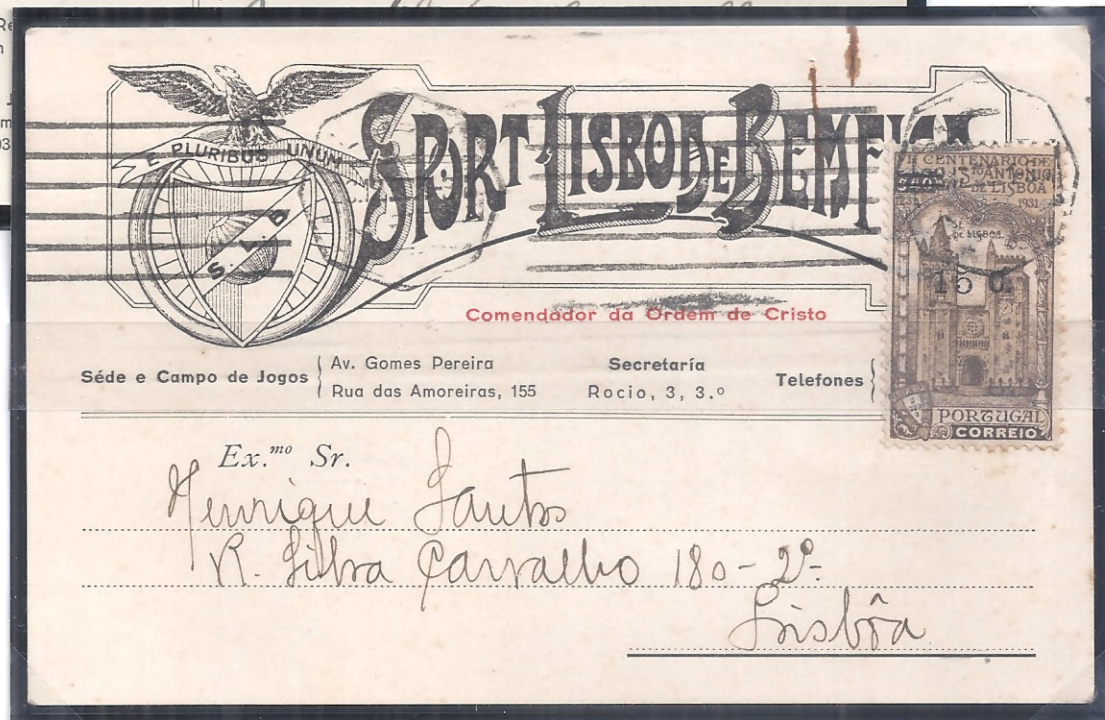 SPORT LISBOA E BEMFICA
E PLURIBUS UNUM
S L B
Comendador da Ordem de Cristo
Séde e Campo de Jogos
Av. Gomes Pereira
Rua das Amoreiras, 155
Secretaría
Rocio, 3, 3.º
Telefones
VII CENTENARIO DE
STO ANTONIO
DE LISBOA
1231
1931
SÉ
DE LISBOA
15 C.
PORTUGAL
CORREIO
Ex.mo Sr.
Henrique Santos
R. Silva Carvalho 180-2º-
Lisbôa